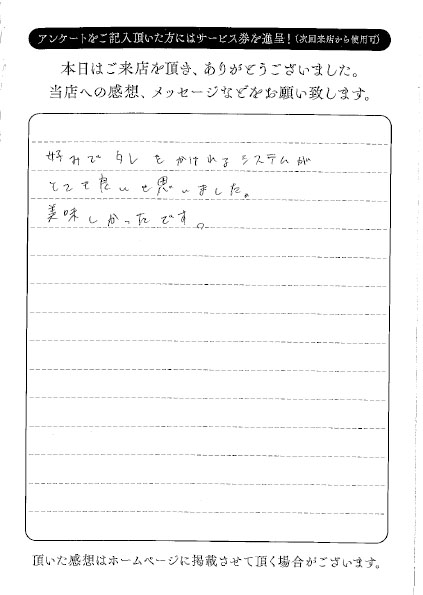 アンケートをご記入頂いた方にはサービス券を進呈！（次回来店から使用可）
本日はご来店を頂き、ありがとうございました。
当店への感想、メッセージなどをお願い致します。
好みでタレをかけれるシステムが
とても良いと思いました。
美味しかったです。
頂いた感想はホームページに掲載させて頂く場合がございます。